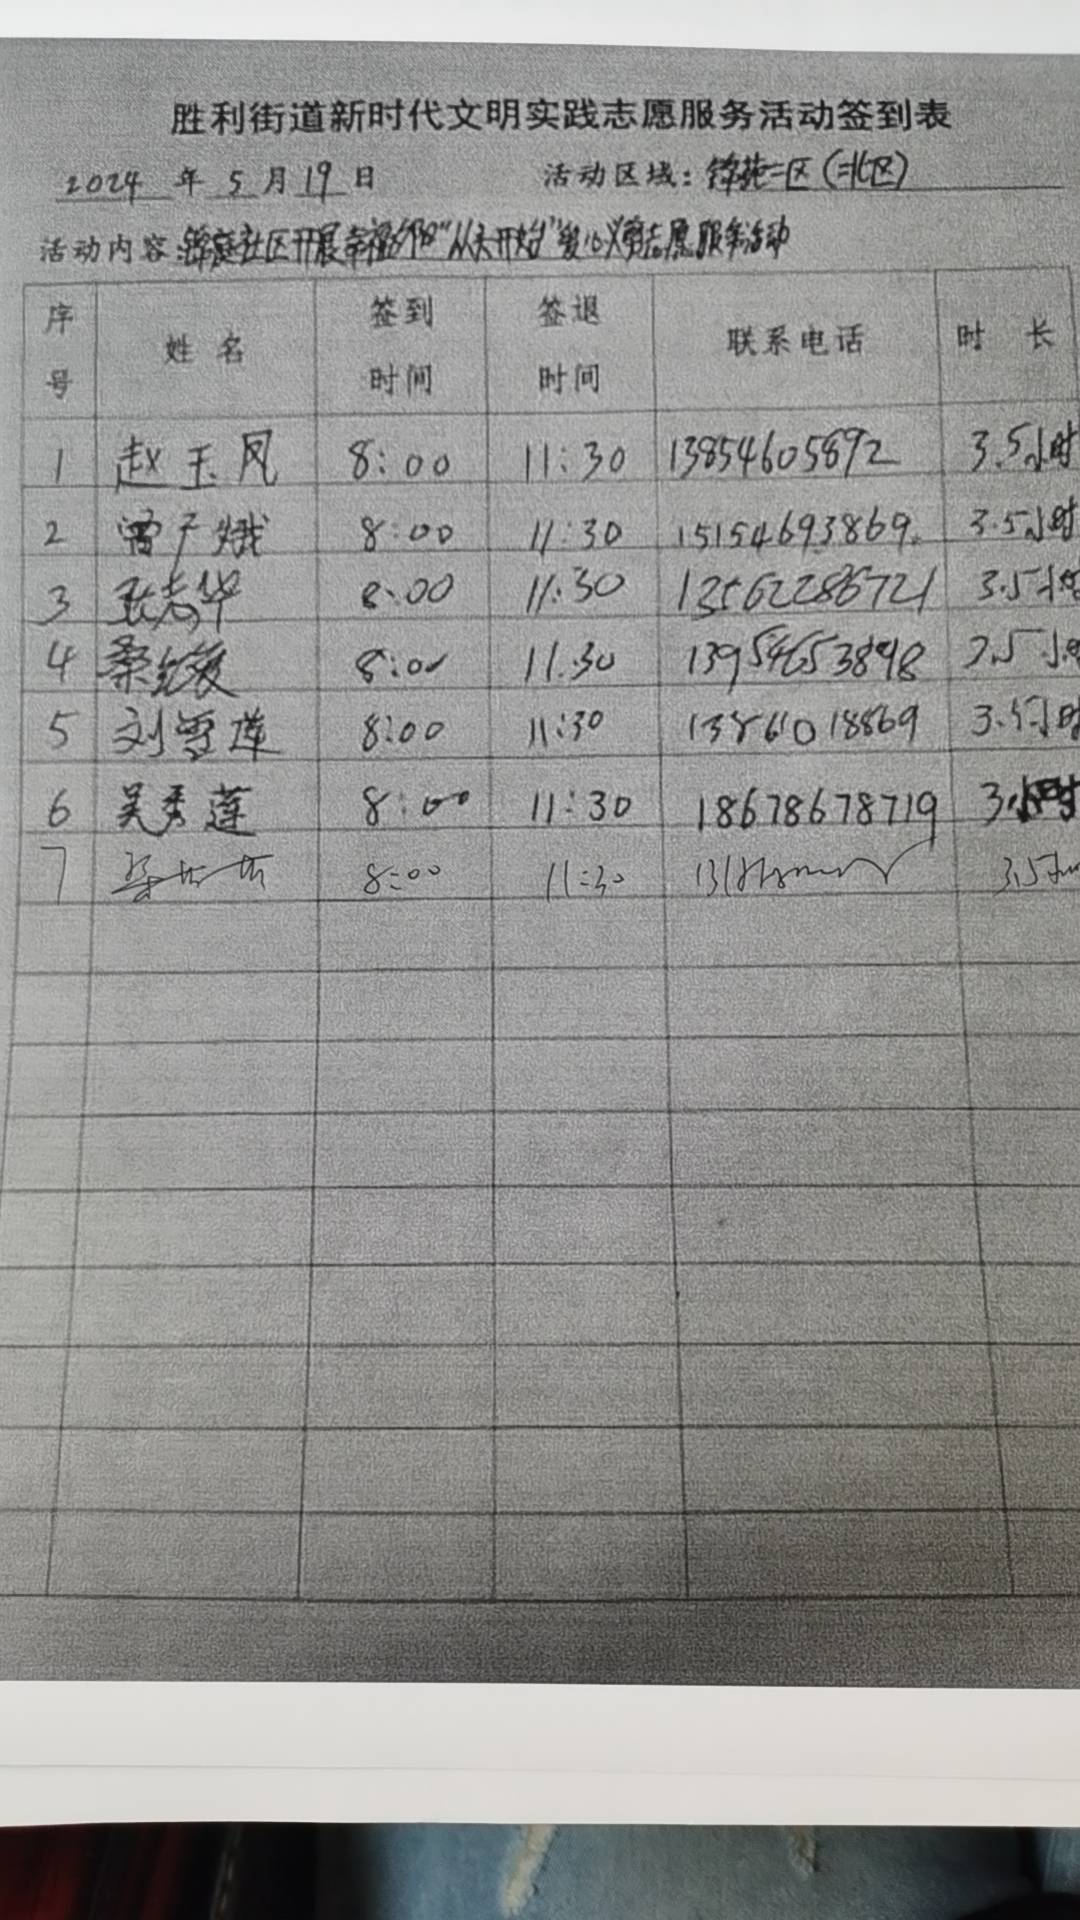 胜利街道新时代文明实践志愿服务活动签到表
2024 年 5 月 19 日 活动区域：锦苑二区（三北区）
活动内容：锦庭社区开展幸福夕阳"从头开始"爱心义剪志愿服务活动
序号 姓名 签到时间 签退时间 联系电话 时长
1 赵玉凤 8:00 11:30 13854605892 3.5小时
2 8:00 11:30 15154693869 3.5小时
3 8:00 11:30 13562286721 3.5小时
4 8:00 11:30 13954653898
5 刘雪莲 8:00 11:30 13861018869 3.5小时
6 吴秀莲 8:00 11:30 18678678719
7 8:00 11:30 3.5